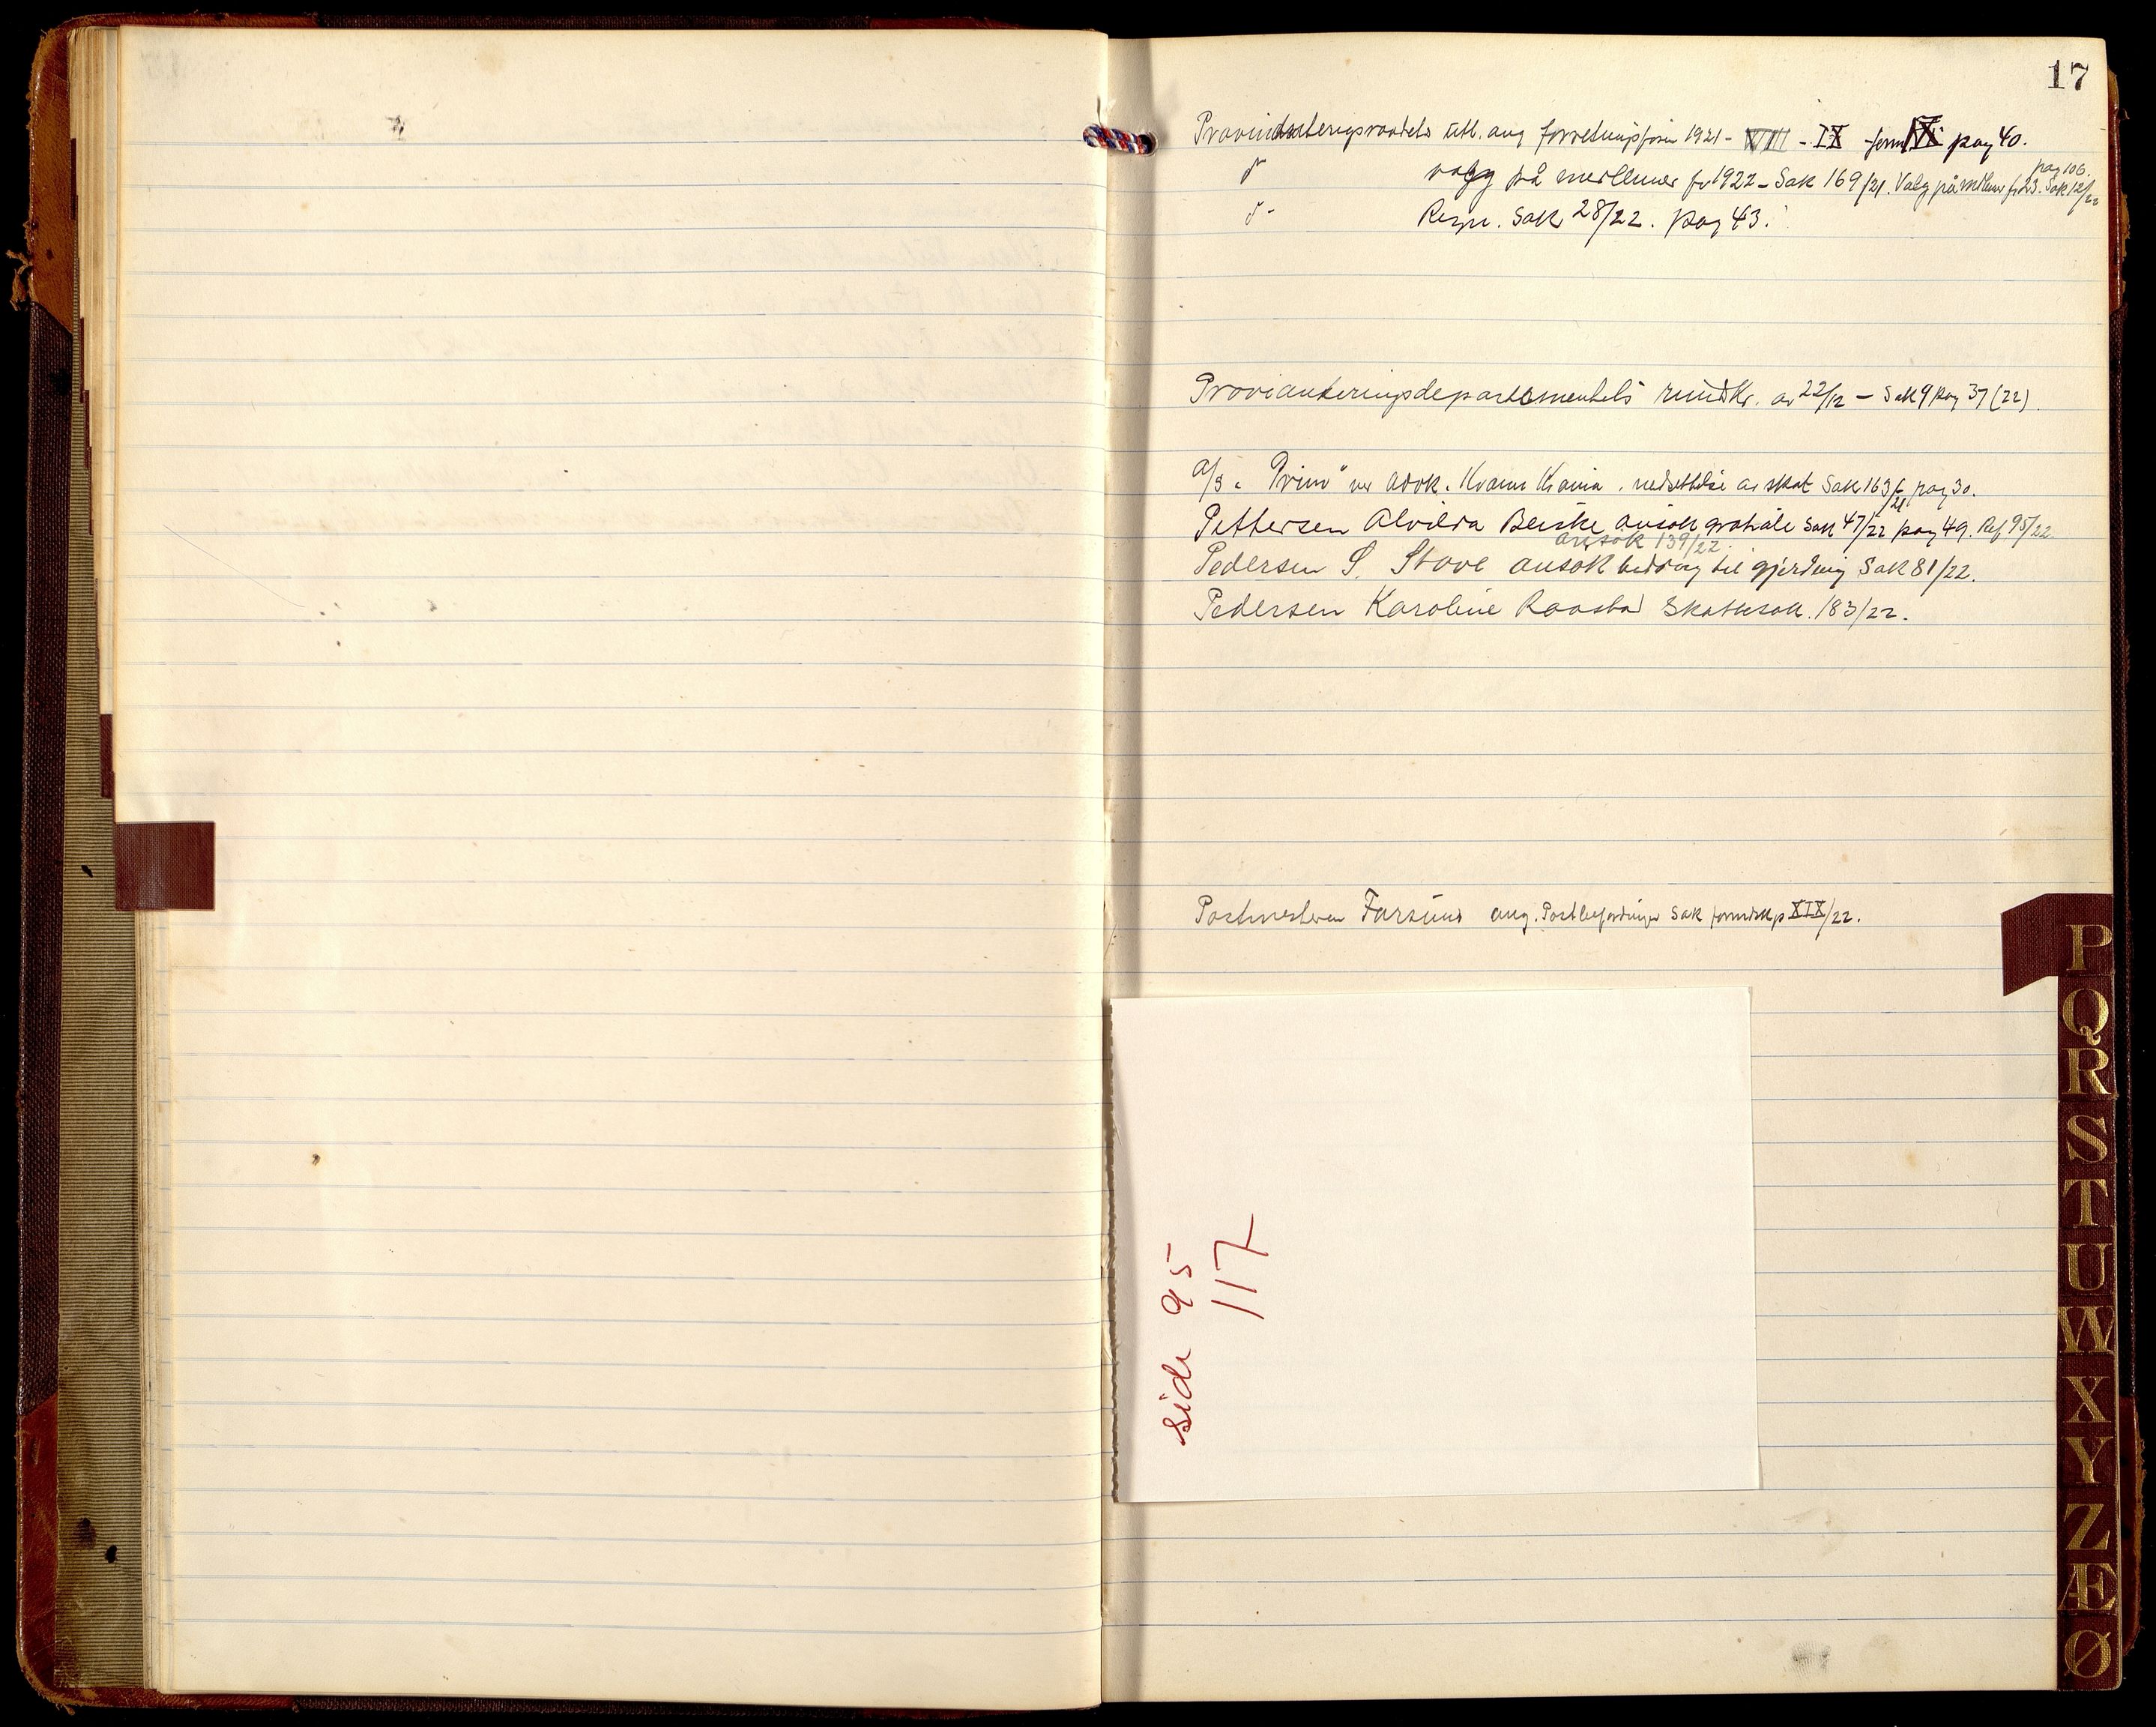 17
Provianteringsraadets utl. ang forretningsføren 1921 - VIII - IX - form XI pag 40.
pag 106.
d valg på medlemer for 1922 - Sak 169/21. Valg på medlemer for 23. Sak 12/22
d - Regn. Sak 28/22. pag 43.
Provianteringsdepartementets rundkr. av 22/12 - Sak 9 pag 37 (22).
A/S. "Prim" ver advk. Kvam Krania. nedsettelse av skat Sak 163/21 pag 30.
Pettersen Alvilda Beiske ansøk gratiale Sak 47/22 pag 49. Ref 95/22.
ansøk 139/22
Pedersen S. Stave ansøk bidrag til gjerding Sak 81/22.
Pedersen Karoline Raastad Skattesak. 183/22.
Postmesteren Farsund ang. Postbefordringen Sak formdskp XIX/22.
side 95
117
P
Q
R
S
T
U
W
X
Y
Z
Æ
Ø